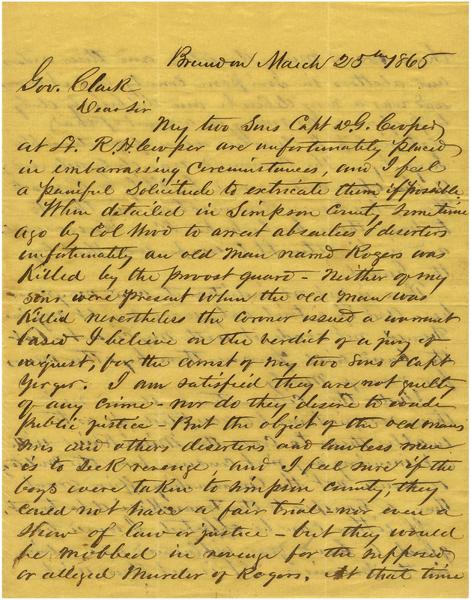 Brandon March 25th 1865
Gov. Clark
Dear Sir
My two Sons Capt D.G. Cooper,
at Lt. R.H. Cooper are unfortunately placed
in embarrassing circumstances, and I feel
a painful Solicitude to extricate them if possible
When detailed in Simpson County Sometime
ago by Col Wood to arrest absentees & deserters
unfortunately an old man named Rogers was
Killed by the provost guard - Neither of my
sons were present when the old man was
Killed nevertheless the coroner issued a warrant
based I believe on the verdict of a jury of
inquest, for the arrest of my two Sons & Capt
Yerger. I am satisfied they are not guilty
of any crime - nor do they desire to evade
public justice - But the object of the old mans
sons and others deserters and lawless men
is to Seek revenge and I feel sure if the
boys were taken to Simpson County, they
could not have a fair trial - nor even a
show of law or justice - but they would
be mobbed in revenge for the supposed
or alleged Murder of Rogers. At that time